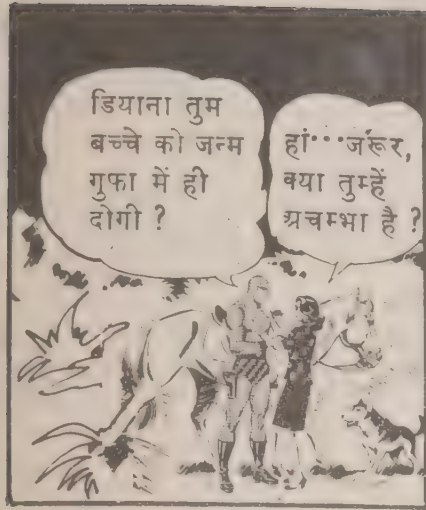 डियाना तुम
बच्चे को जन्म
गुफा में ही
दोगी ?
हां···जरूर,
क्या तुम्हें
अचम्भा है ?